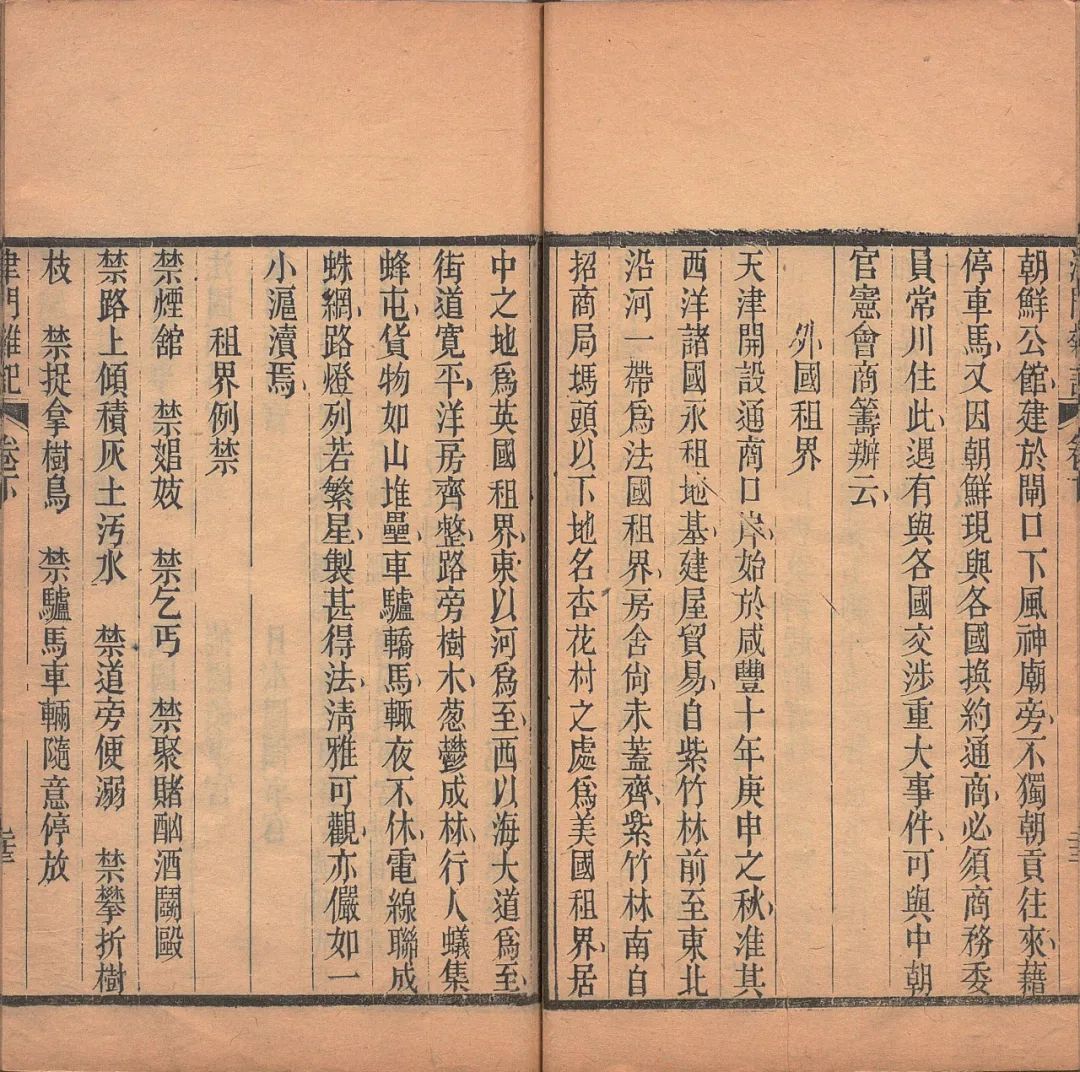 朝鮮公館建於閘口下風神廟旁不獨朝貢往來藉
停車馬又因朝鮮現與各國換約通商必須商務委
員常川住此遇有與各國交涉重大事件可與中朝
官憲會商籌辦云
外國租界
天津開設通商口岸始於咸豐十年庚申之秋准其
西洋諸國永租地基建屋貿易自紫竹林前至東北
沿河一帶爲法國租界房舍尙未蓋齊紫竹林南自
招商局碼頭以下地名杏花村之處爲美國租界居
中之地爲英國租界東以河爲至西以海大道爲至
街道寬平洋房齊整路旁樹木葱鬱成林行人蟻集
蜂屯貨物如山堆壘車驢轎馬輙夜不休電線聯成
蛛網路燈列若繁星製甚得法淸雅可觀亦儼如一
小滬瀆焉
租界例禁
禁煙館　禁娼妓　禁乞丐　禁聚賭酗酒鬪毆
禁路上傾積灰土汚水　禁道旁便溺　禁攀折樹
枝　禁捉拿樹鳥　禁驢馬車輛隨意停放
津門雜記　卷下